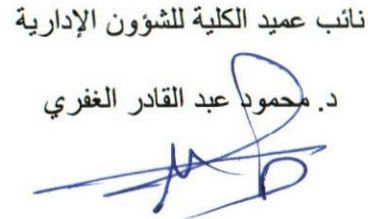 نائب عميد الكلية للشؤون الإدارية
د. محمود عبد القادر الغفري